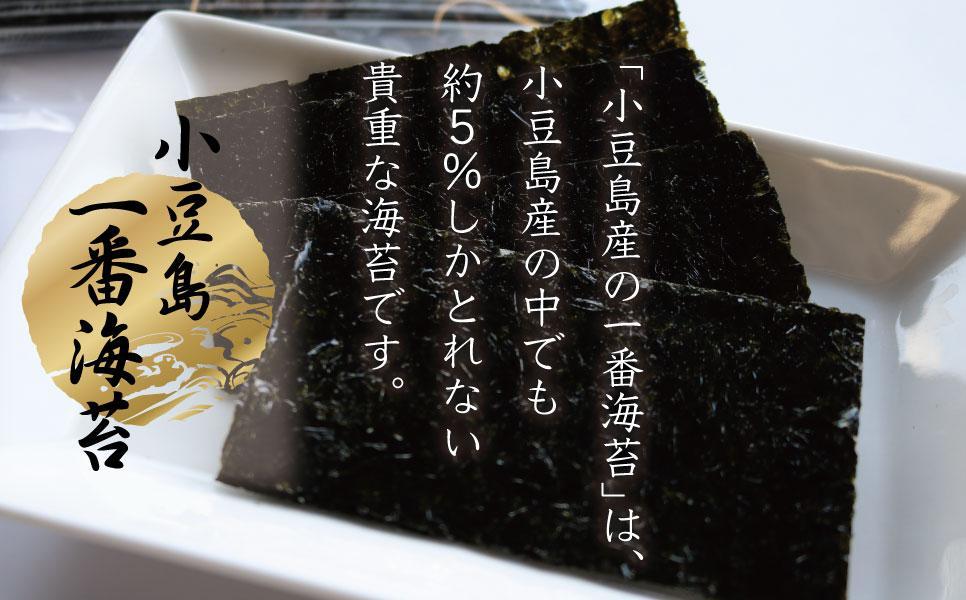 「小豆島産の一番海苔」は、
小豆島産の中でも
約5%しかとれない
貴重な海苔です。
小豆島
一番海苔